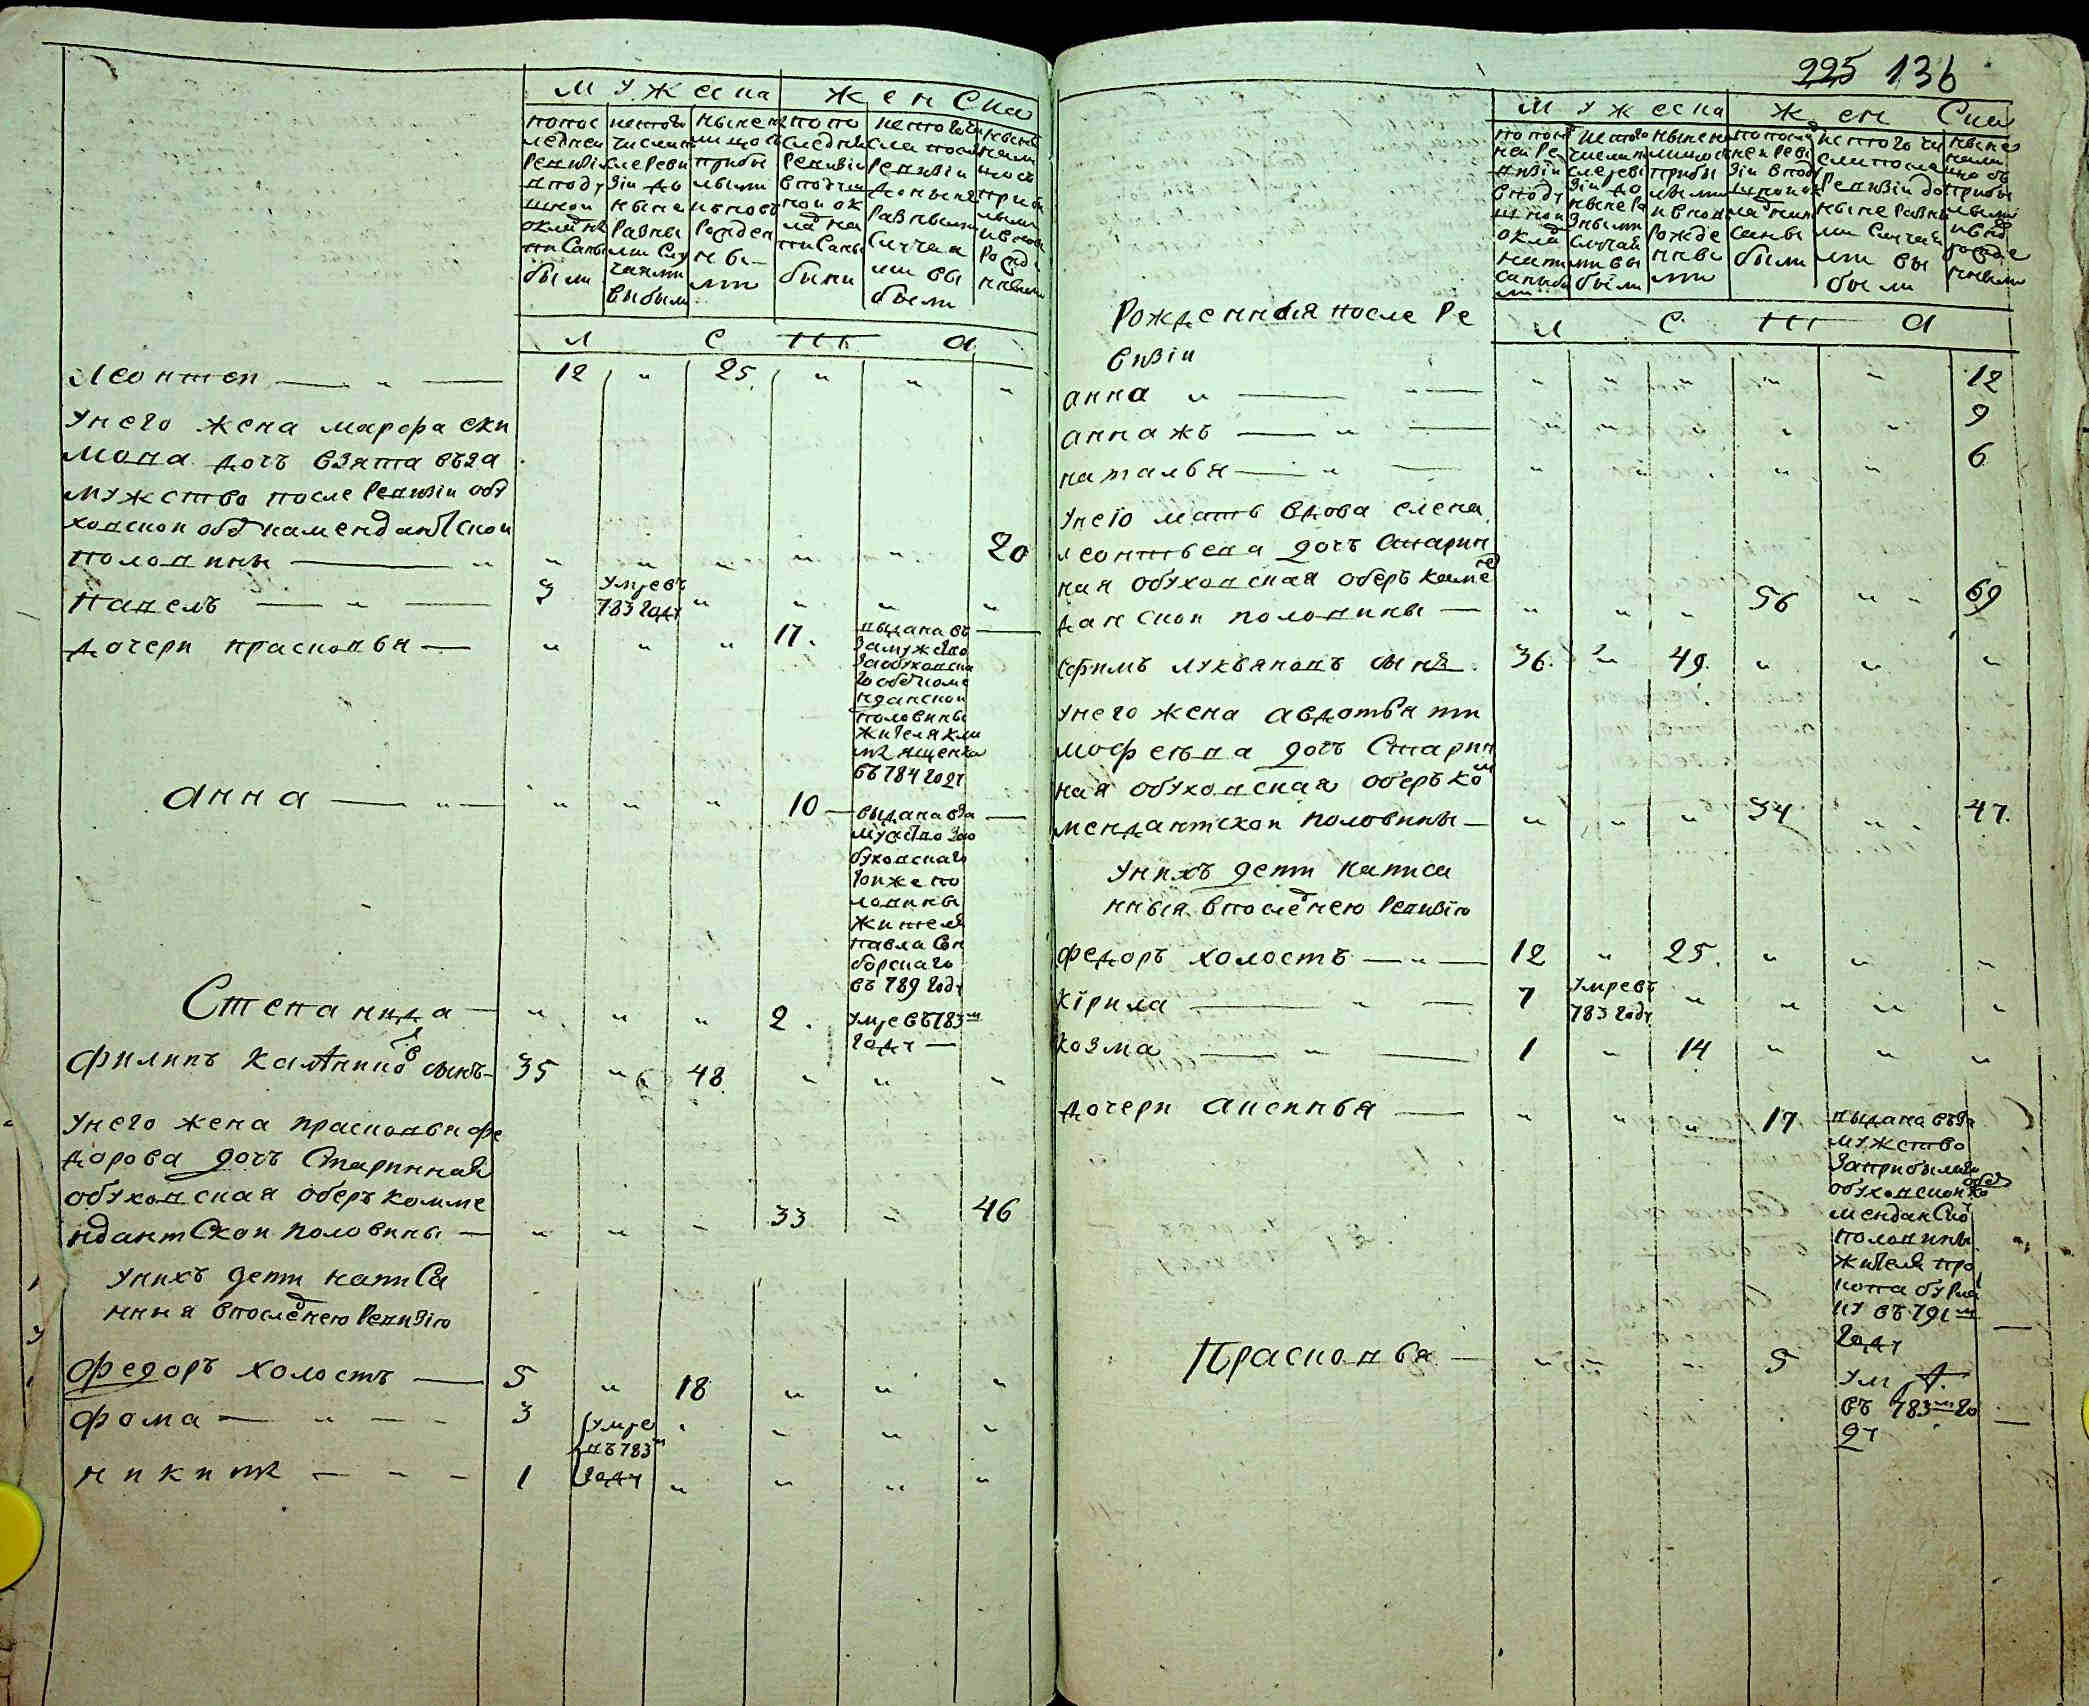 мужеска женска
попос
ледней
ревизіи
вподу
шной
окладъ
писаны
были
изтого
числа по
сле реви
зіи до
ныне
разны
ми слу
чаями
выбыли
ныне на
лицо съ
прибы
лыми
и вновь
рожден
ны
ми
попо
следней
ревизіи
вподуш
ной ок
ладъ на
писаны
были
изтого чи
сла после
ревизіи
доныне
разными
случая
ми вы
были
ныне
нали
цо съ
прибы
лыми
и внов
рожде
нными
л е т а
Леонтей 12 25
Унего жена марфа еки
мова дочъ взята въза
мужство после ревизіи обу
ховской обер каменданской
половины 20
Павелъ 3 умре въ
783 году
дочери прасковья 17. выдана въ
замужство
за обуховска
го обер коме
нданской
половины
жителя кли
ма ященка
въ 784 году
анна 10 выдана вза
муство зао
буховскаго
тойже по
ловины
жителя
павла сон
борскаго
въ 789 году
Степанида 2. умре въ 783м
году
Филипъ Калениковъ сынъ 35 48
Унего жена прасковья фе
дорова дочъ Старинная
обуховская оберъ комме
ндантской половины 33 46
Унихъ дети написа
нныя впоследнею ревизію
Федоръ холостъ 5 18
Фома 3 умре
въ 783м
году
никита 1
225 136
мужеска женска
попослед
ней ре
визіи
вподу
шной
оклад
напи
саны бы
ли
изтого
числа по
сле реви
зіи до
ныне ра
зными
случая
ми вы
были
ныне на
лицо съ
прибы
лыми
и внов
рожде
нны
ми
попослед
ней реви
зіи вподу
шной ок
лад напи
саны
были
изтого чи
сла после
ревизіи до
ныне разны
ми случая
ми вы
были
ныне
нали
цо съ
прибы
лыми
и внов
рожде
нными
Рожденныя после ре
визіи
л е т а
анна 12
анна жъ 9
наталья 6
Унего мать вдова елена
леонтьева дочъ старин
ная обуховская оберъ комен
данской половины 56 69
Ефимъ лукьяновъ сынъ 36. 49.
Унего жена авдотья ти
мофеева дочъ Старин
ная обуховская оберъ ком
мендантской половины 34 47.
Унихъ дети написа
нныя впоследнею ревизію
Федоръ холостъ 12 25.
Кірила 7 умре въ
783 году
Козма 1 14
дочери аксинья 17 выдана въза
мужство
за прибылаго
обуховской обер ко
менданской
половины
жителя про
копа бурла
ку въ 791м
году
Прасковья 5 умре
въ 783м го
ду